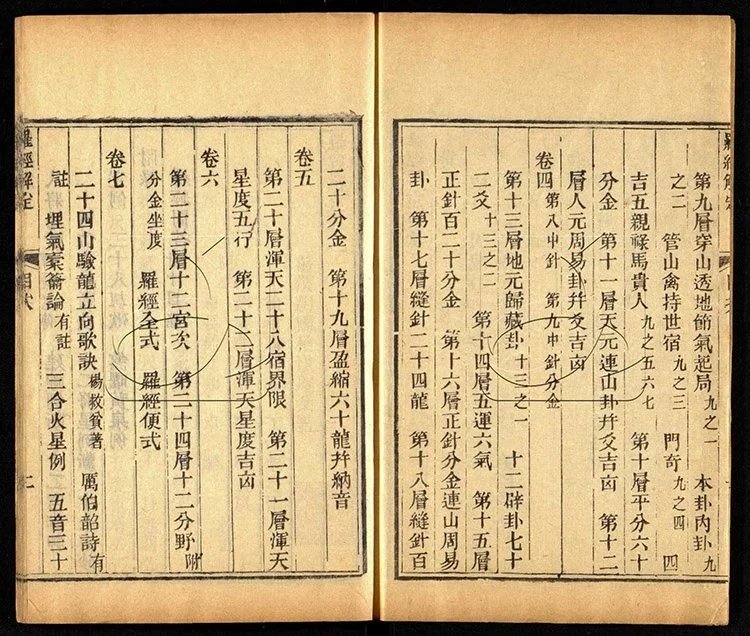 第九層穿山透地節氣起局九之一 本卦內卦九
之二 管山禽持世宿九之三 門奇九之四 四
吉五親祿馬貴人九之五六七 第十層平分六十
分金 第十一層天元連山卦幷爻吉凶 第十二
層人元周易卦幷爻吉凶
卷四 第八中針 第九中針分金
第十三層地元歸藏卦十三之一 十二辟卦七十
二爻十三之二 第十四層五運六氣 第十五層
正針百二十分金 第十六層正針分金連山周易
卦 第十七層縫針二十四龍 第十八層縫針百
二十分金 第十九層盈縮六十龍幷納音
卷五
第二十層渾天二十八宿界限 第二十一層渾天
星度五行 第二十二層渾天星度吉凶
卷六
第二十三層十二宮次 第二十四層十二分野附
分金坐度 羅經全式 羅經便式
卷七
二十四山驗龍立向歌訣楊救貧著 厲伯韶詩有
註 埋氣索籥論有註 三合火星例 五音三十
羅經解定 目次 二